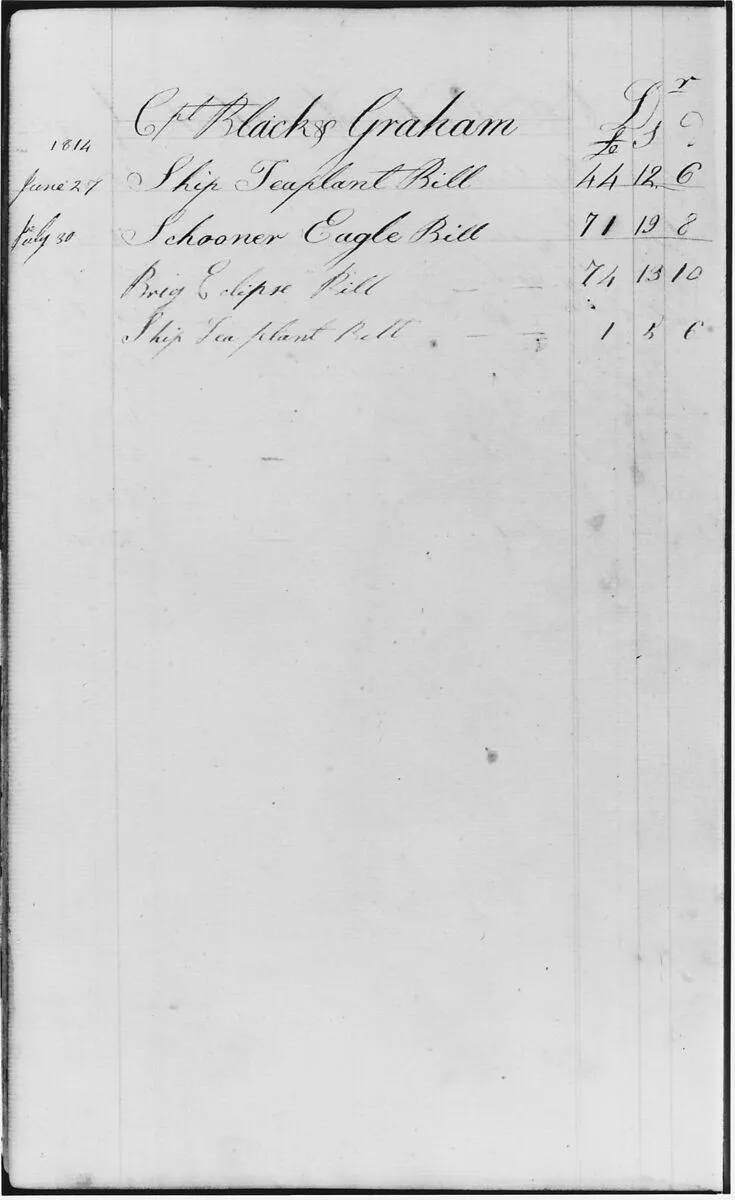 Cpt Black & Graham Dr
1814 £ S D
June 27 Ship Teaplant Bill 44 12 6
July 30 Schooner Eagle Bill 71 19 8
Brig Eclipse Bill 74 13 10
Ship Tea plant Bill 1 5 6